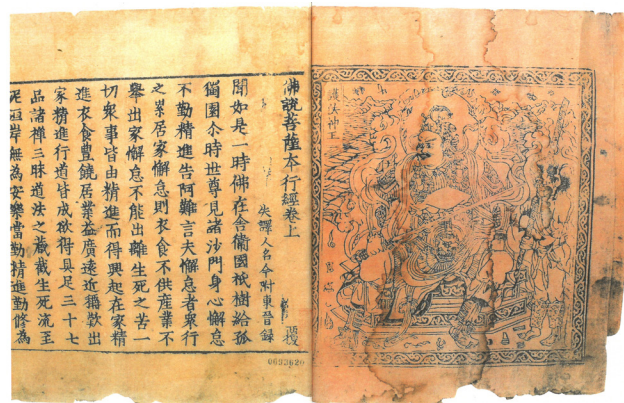 護法神
佛說菩薩本行經卷上
失譯人名今附東晉錄
聞如是一時佛在舍衛國祇樹給孤
獨園尒時世尊見諸沙門身心懈怠
不勤精進告阿難言夫懈怠者衆行
之累居家懈怠則衣食不供産業不
舉出家懈怠不能出離生死之苦一
切衆事皆由精進而得興起在家精
進衣食豐饒居業益廣遠近稱歎出
家精進行道皆成欲得具足三十七
品諸禪三昧道法之藏截生死流至
泥洹岸無為安樂當勤精進勤修為